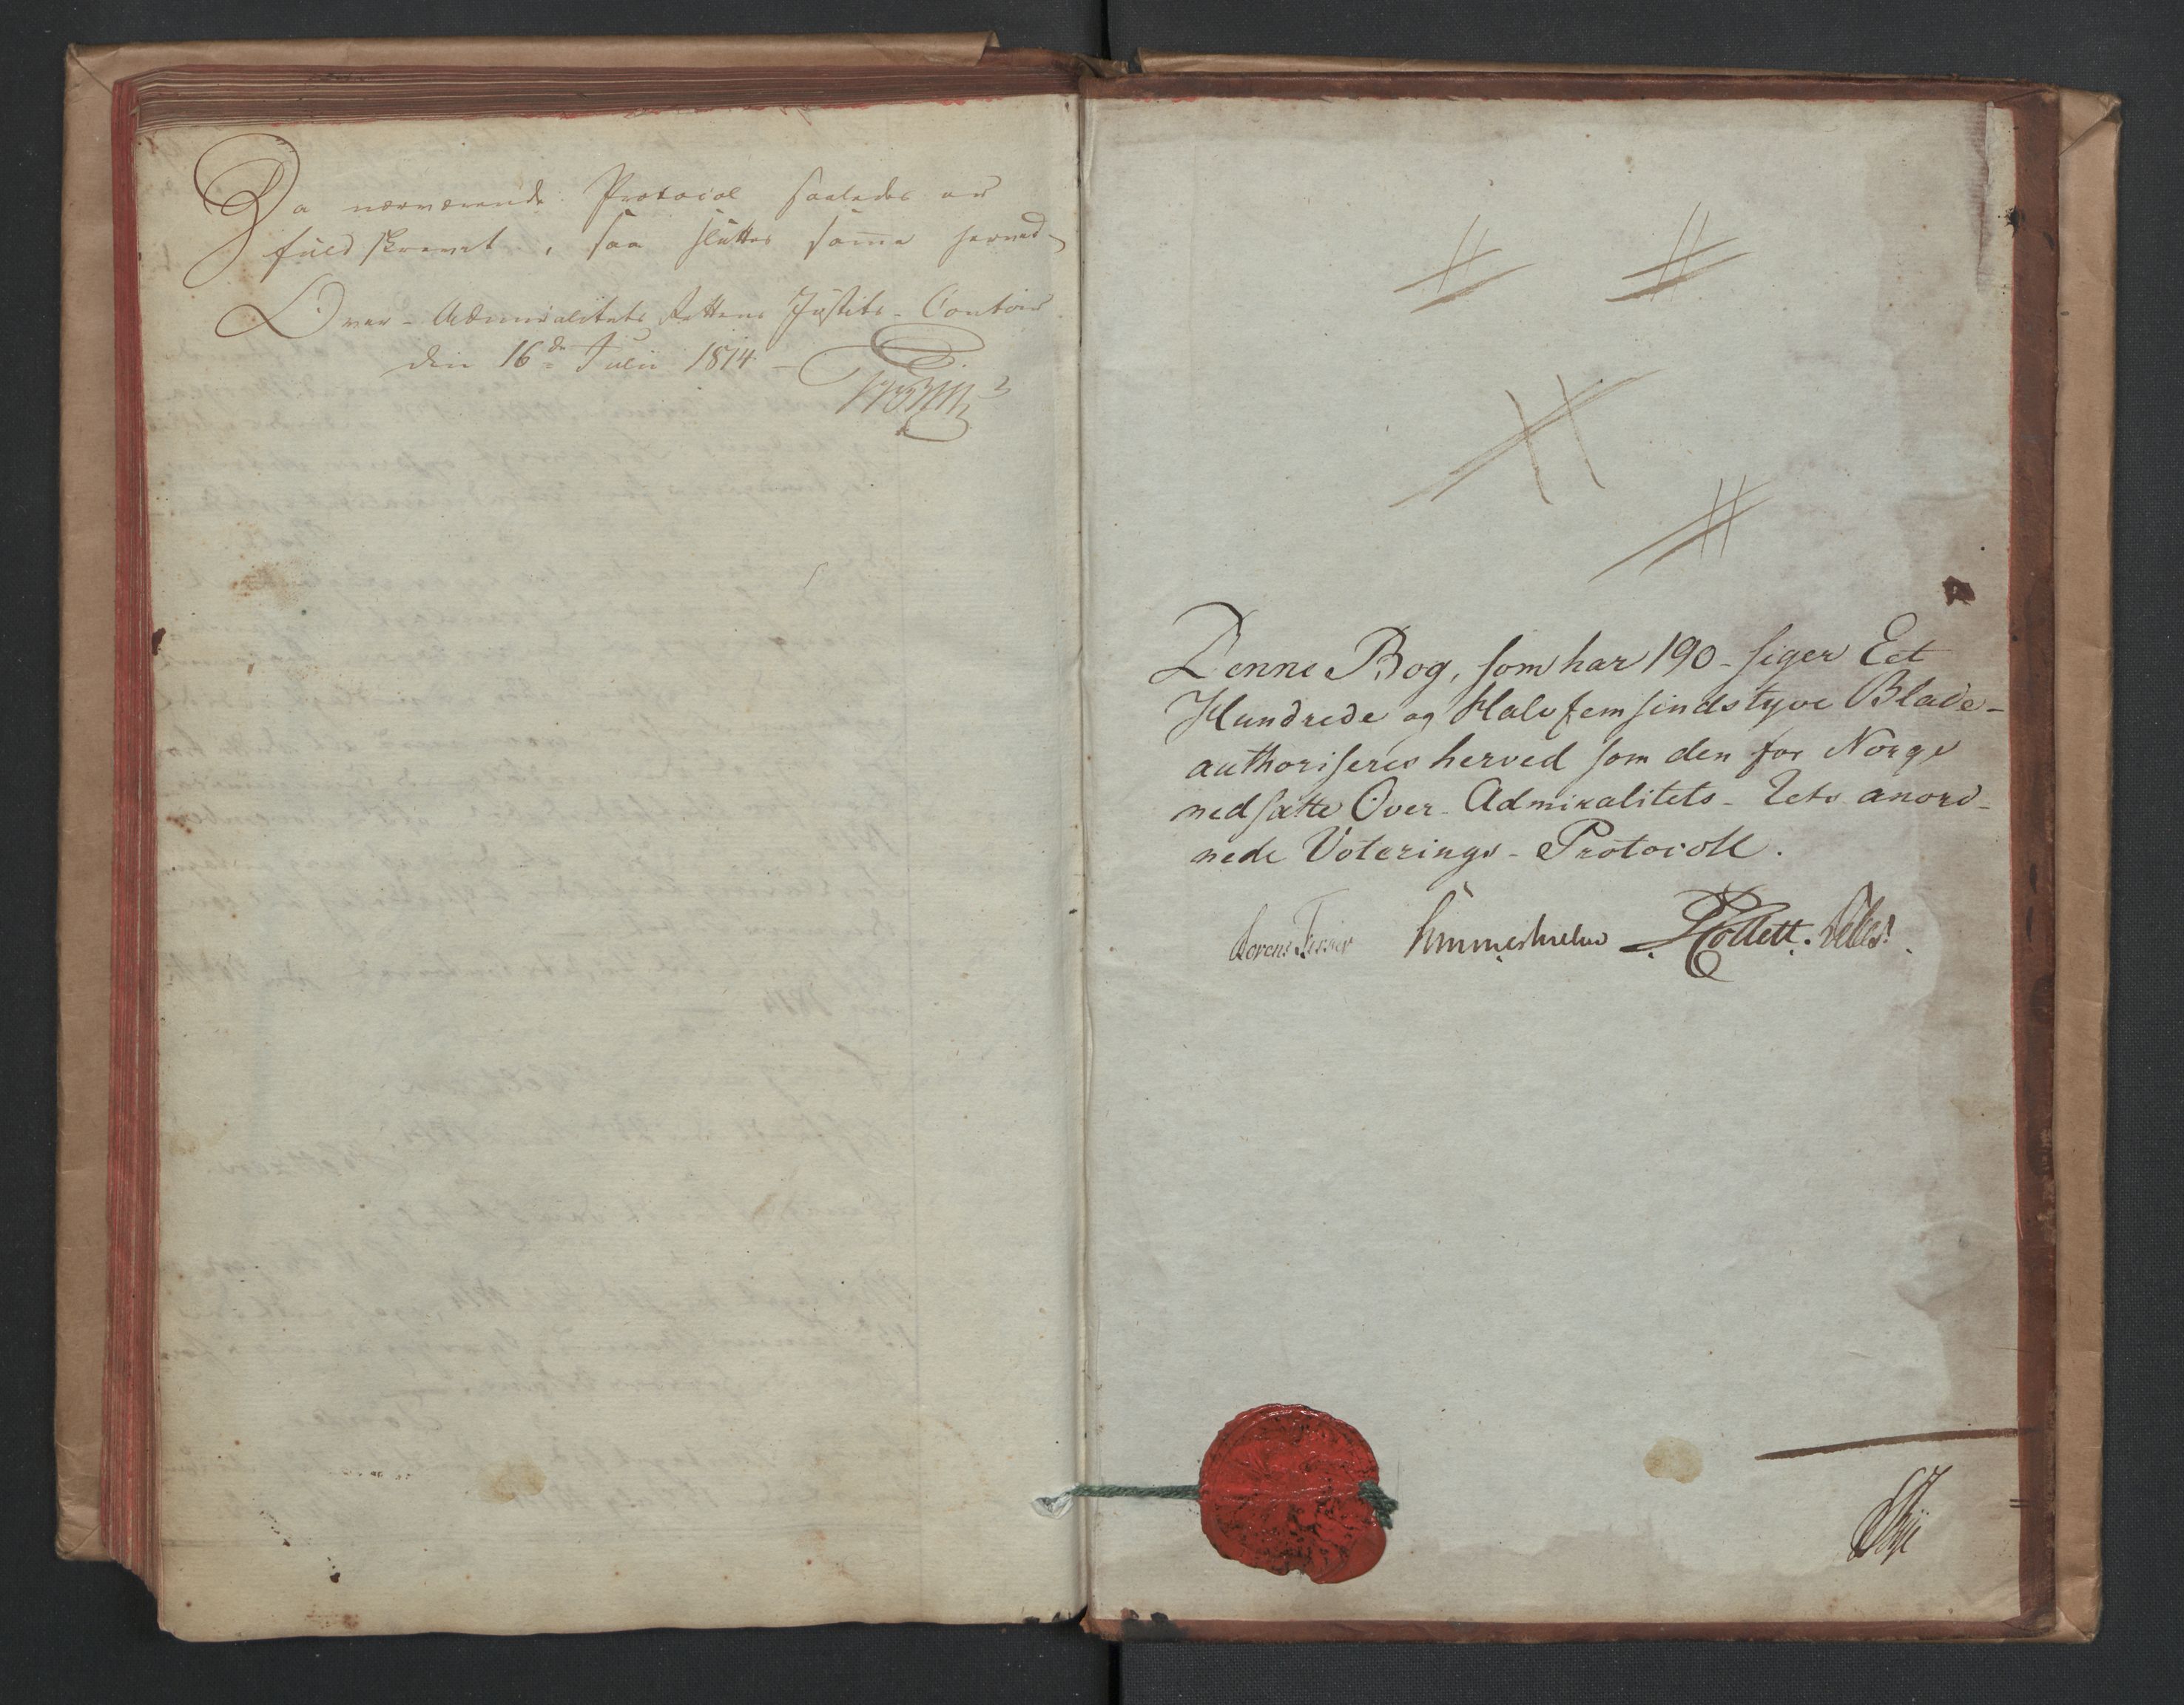 Da nærværende Protocol saaledes er
fuldskrevet, saa sluttes samme herved
Over-Admiralitets Rettens Justits-Contoir
den 16de Julii 1814 -
Denne Bog, som har 190 - siger Eet
Hundrede og Halvfemsindstyve Blade -
authoriseres herved som den for Norge
nedsatte Over-Admiralitets-Rets anord-
nede Voterings-Protocoll.
Collett.